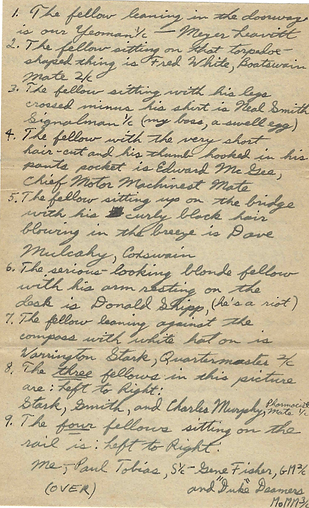 1. The fellow leaning in the doorway
is our Yeoman 1/c - Meyer Leavitt
2. The fellow sitting on that torpedo-
shaped thing is Fred White, Boatswain
Mate 2/c
3. The fellow sitting with his legs
crossed minus his shirt is Neal Smith
Signalman 1/c (my boss, a swell egg)
4. The fellow with the very short
hair-cut and his thumb hooked in his
pants pocket is Edward Mc Gee,
Chief Motor Machinest Mate
5. The fellow sitting up on the bridge
with his curly black hair
blowing in the breeze is Dave
Mulcahy, Coxswain
6. The serious-looking blonde fellow
with his arm resting on the
desk is Donald Shipp, (he's a riot)
7. The fellow leaning against the
compass with white hat on is
Varrington Stark, Quartermaster 2/c
8. The three fellows in this picture
are: Left to Right:
Stark, Smith, and Charles Murphy, Pharmacist
Mate 1/c
9. The four fellows sitting on the
rail is: Left to Right:
Me, - Paul Tobias, S 1/c - Gene Fisher, G.M 3/c
(OVER) and "Duke"
MoMM 3/c